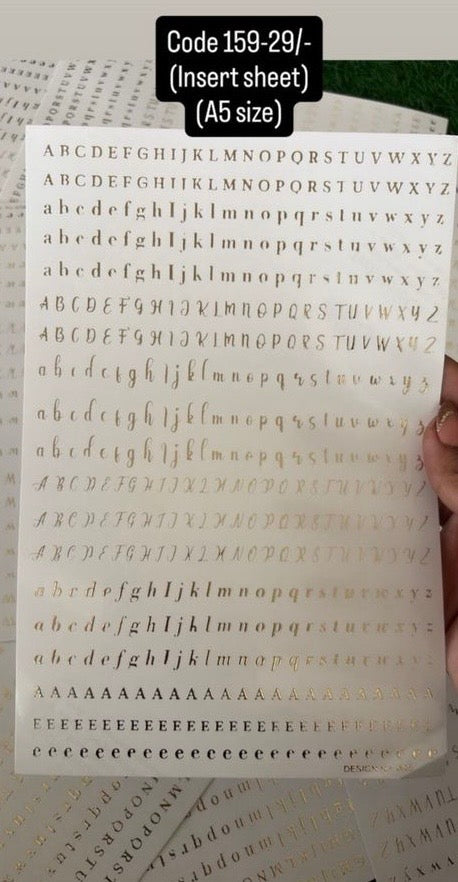 Code 159-29/-
(Insert sheet)
(A5 size)
A B C D E F G H I J K L M N O P Q R S T U V W X Y Z
A B C D E F G H I J K L M N O P Q R S T U V W X Y Z
a b c d e f g h I j k l m n o p q r s t u v w x y z
a b c d e f g h I j k l m n o p q r s t u v w x y z
a b c d e f g h I j k l m n o p q r s t u v w x y z
A B C D E F G H I J K L M N O P Q R S T U V W X Y Z
A B C D E F G H I J K L M N O P Q R S T U V W X Y Z
a b c d e f g h I j k l m n o p q r s t u v w x y z
a b c d e f g h I j k l m n o p q r s t u v w x y z
a b c d e f g h I j k l m n o p q r s t u v w x y z
A B C D E F G H I J K L M N O P Q R S T U V W X Y Z
A B C D E F G H I J K L M N O P Q R S T U V W X Y Z
A B C D E F G H I J K L M N O P Q R S T U V W X Y Z
a b c d e f g h I j k l m n o p q r s t u v w x y z
a b c d e f g h I j k l m n o p q r s t u v w x y z
a b c d e f g h I j k l m n o p q r s t u v w x y z
A A A A A A A A A A A A A A A A A A A A A A A A
E E E E E E E E E E E E E E E E E E E E E E E E
e e e e e e e e e e e e e e e e e e e e e e e e
DESIGN